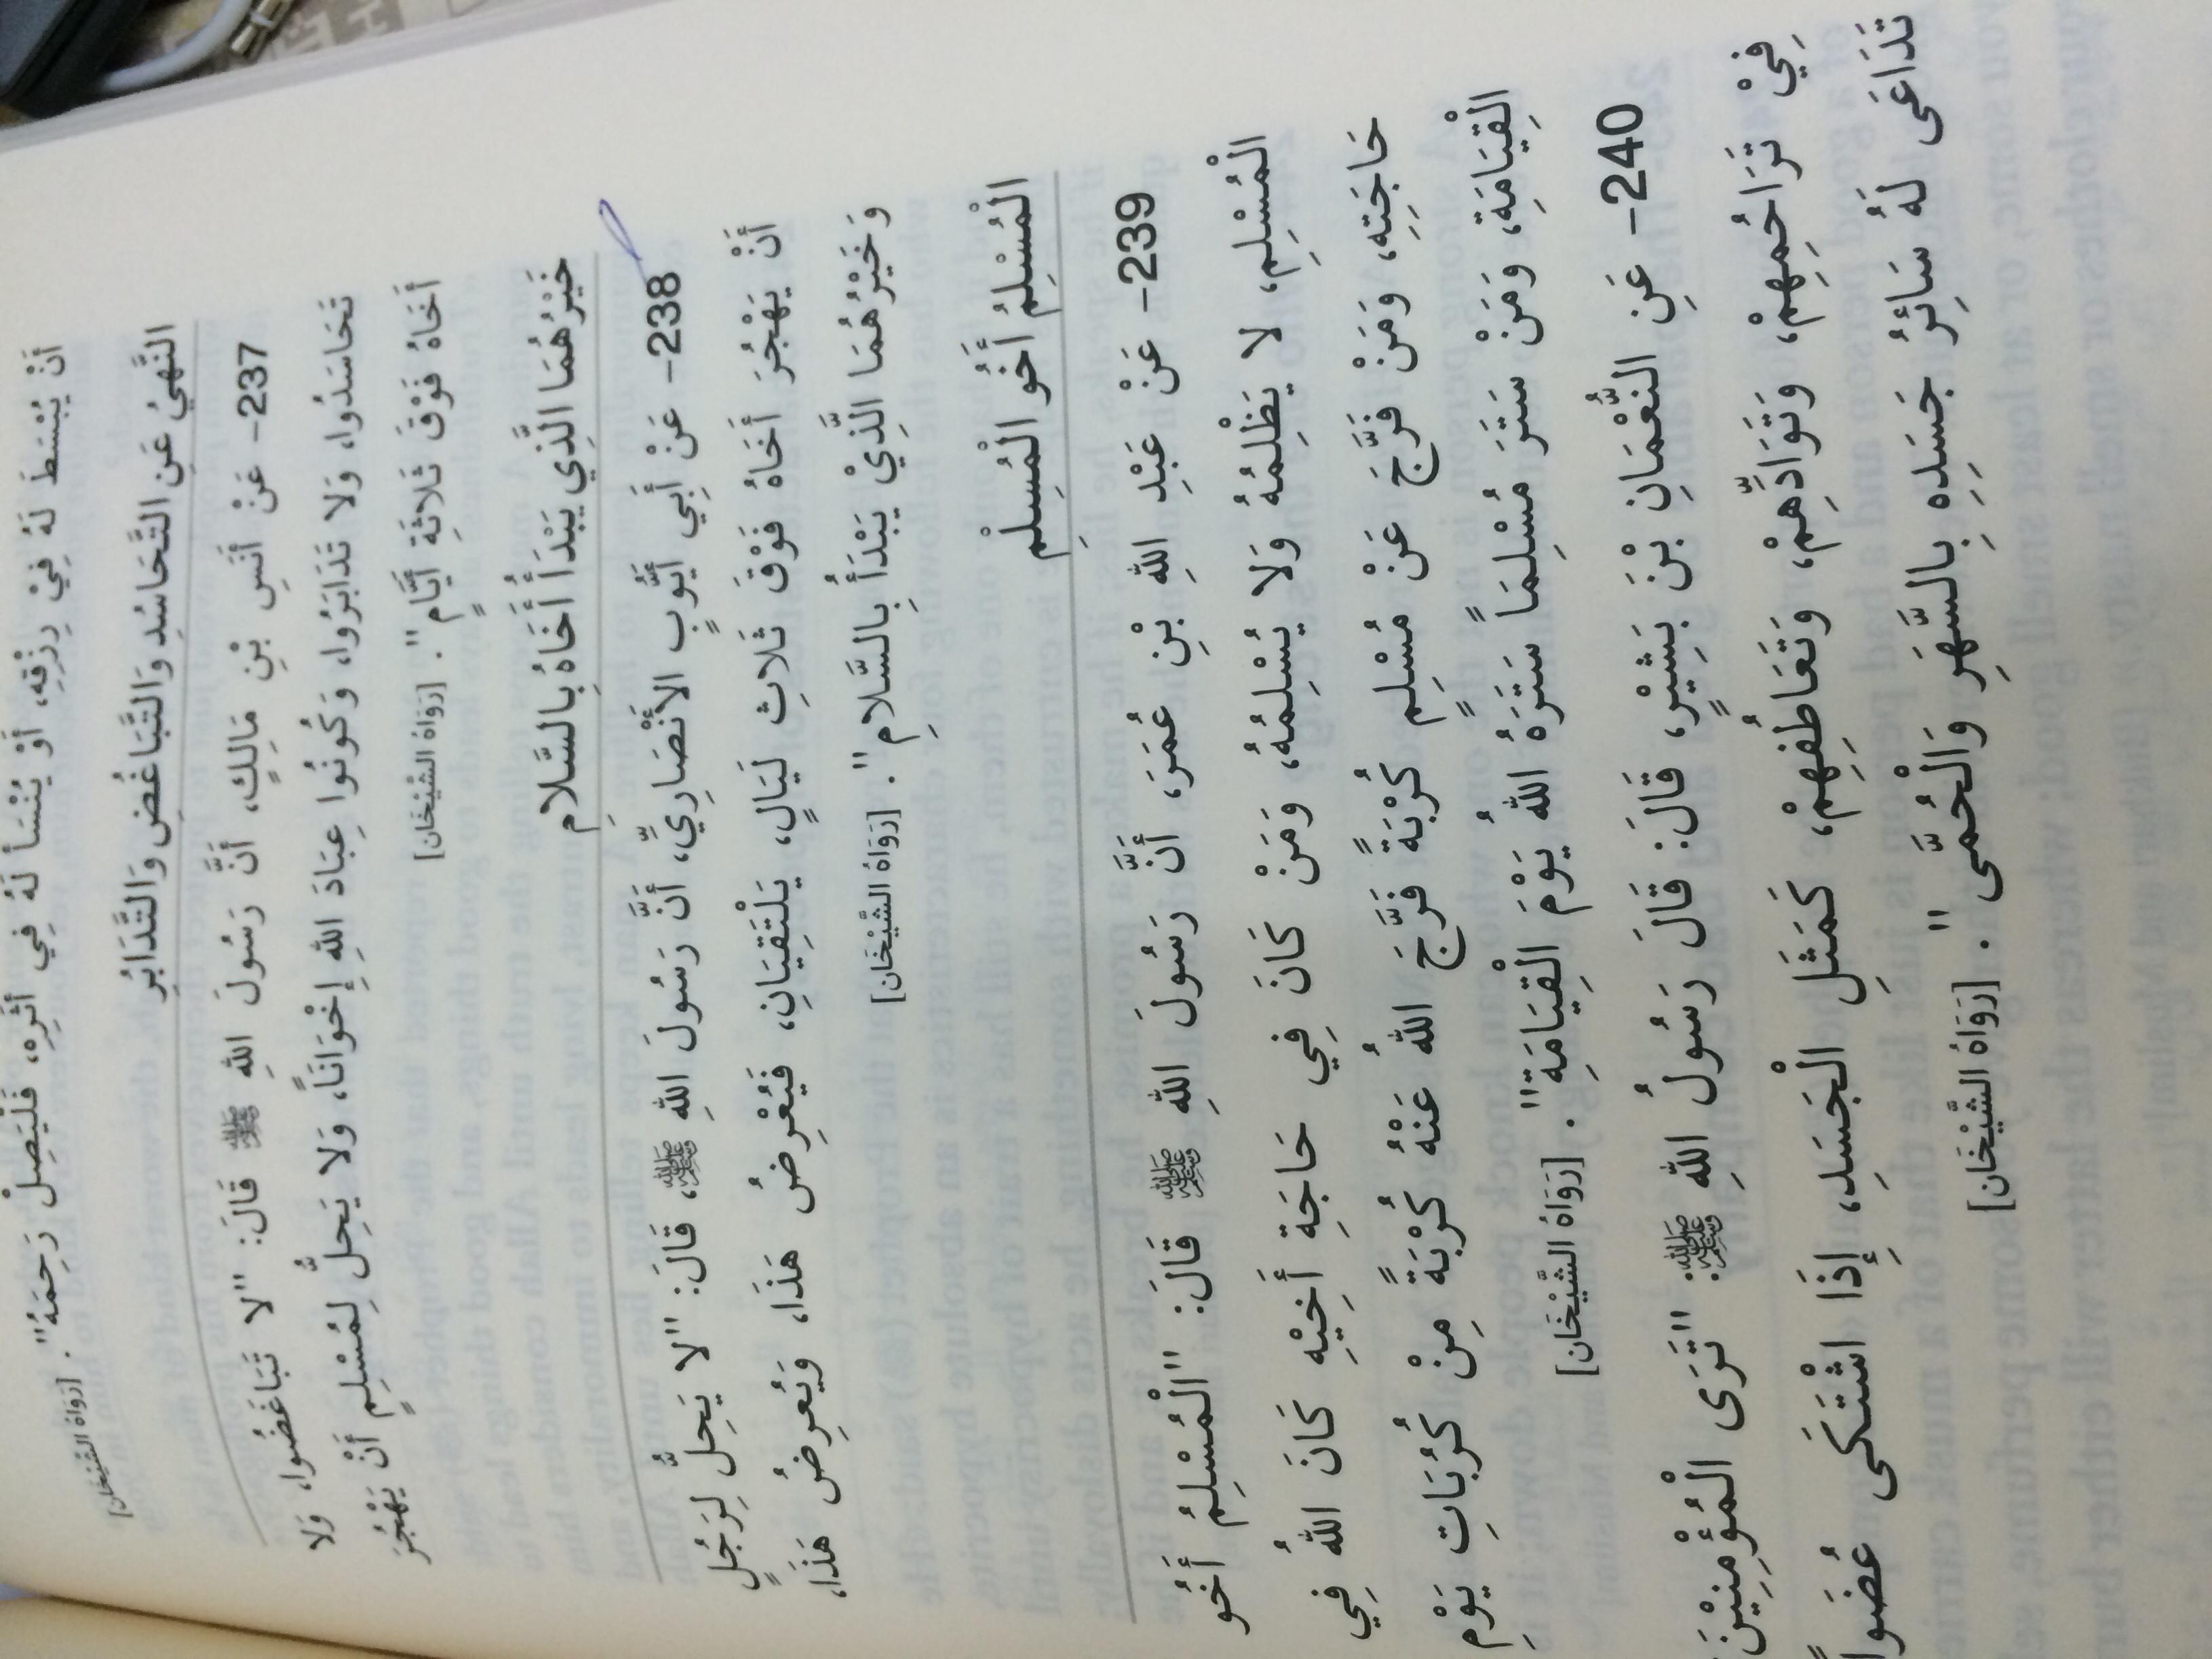 أَنْ يُبْسَطَ لَهُ فِيْ رِزْقِهِ، أَوْ يُنْسَأَ لَهُ فِي أَثَرِهِ، فَلْيَصِلْ رَحِمَهُ". [رَوَاهُ الشَّيْخَان]
النَّهيُ عَنِ التَّحَاسُدِ وَالتَّبَاغُضِ وَالتَّدَابُر
237- عَنْ أَنَسِ بْنِ مَالِكٍ، أَنَّ رَسُولَ اللهِ ﷺ قَالَ: "لا تَبَاغَضُوا، وَلا
تَحَاسَدُوا، وَلا تَدَابَرُوا، وَكُونُوا عِبَادَ اللهِ إِخْوَانَاً، وَلا يَحِلُّ لِمُسْلِمٍ أَنْ يَهْجُرَ
أَخَاهُ فَوْقَ ثَلاثَةِ أَيَّامٍ". [رَوَاهُ الشَّيْخَان]
خَيْرُهُمَا الَّذِي يَبْدَأُ أَخَاهُ بِالسَّلامِ
238- عَنْ أَبِي أَيُّوبٍ الأَنْصَارِيِّ، أَنَّ رَسُولَ اللهِ ﷺ، قَالَ: "لا يَحِلُّ لِرَجُلٍ
أَنْ يَهْجُرَ أَخَاهُ فَوْقَ ثَلاثِ لَيَالٍ، يَلْتَقِيَانِ، فَيُعْرِضُ هَذَا، وَيُعرِضُ هَذَا،
وَخَيْرُهُمَا الَّذِيْ يَبْدَأُ بِالسَّلامِ". [رَوَاهُ الشَّيْخَان]
الْمُسْلِمُ أَخُو الْمُسِلمِْ
239- عَنْ عَبْدِ اللهِ بْنِ عُمَرَ، أَنَّ رَسُولَ اللهِ ﷺ قَالَ: "الْمُسْلِمُ أَخُو
الْمُسْلِمِ، لا يَظْلِمُهُ وَلا يُسْلِمُهُ، وَمَنْ كَانَ فِي حَاجَةِ أَخِيْهِ كَانَ اللهُ فِي
حَاجَتِهِ، وَمَنْ فَرَّجَ عَنْ مُسْلِمٍ كُرْبَةً فَرَّجَ اللهُ عَنْهُ كُرْبَةً مِنْ كُرُبَاتِ يَوْمِ
الْقِيَامَةِ، وَمَنْ سَتَرَ مُسْلِمَاً سَتَرَهُ اللهُ يَوْمَ الْقِيَامَةِ". [رَوَاهُ الشَّيْخَان]
240- عَنِ النُّعْمَانِ بْنَ بَشِيْرٍ، قَالَ: قَالَ رَسُولُ اللهِ ﷺ: "تَرَى الْمُؤْمِنِيْنَ
فِيْ تَرَاحُمِهِمْ، وَتَوَادِّهِمْ، وَتَعَاطُفِهِمْ، كَمَثَلِ الْجَسَدِ، إِذَا اشْتَكَى عُضَواً
تَدَاعَى لَهُ سَائِرُ جَسَدِهِ بِالسَّهَرِ وَالْحُمَّى". [رَوَاهُ الشَّيْخَان]